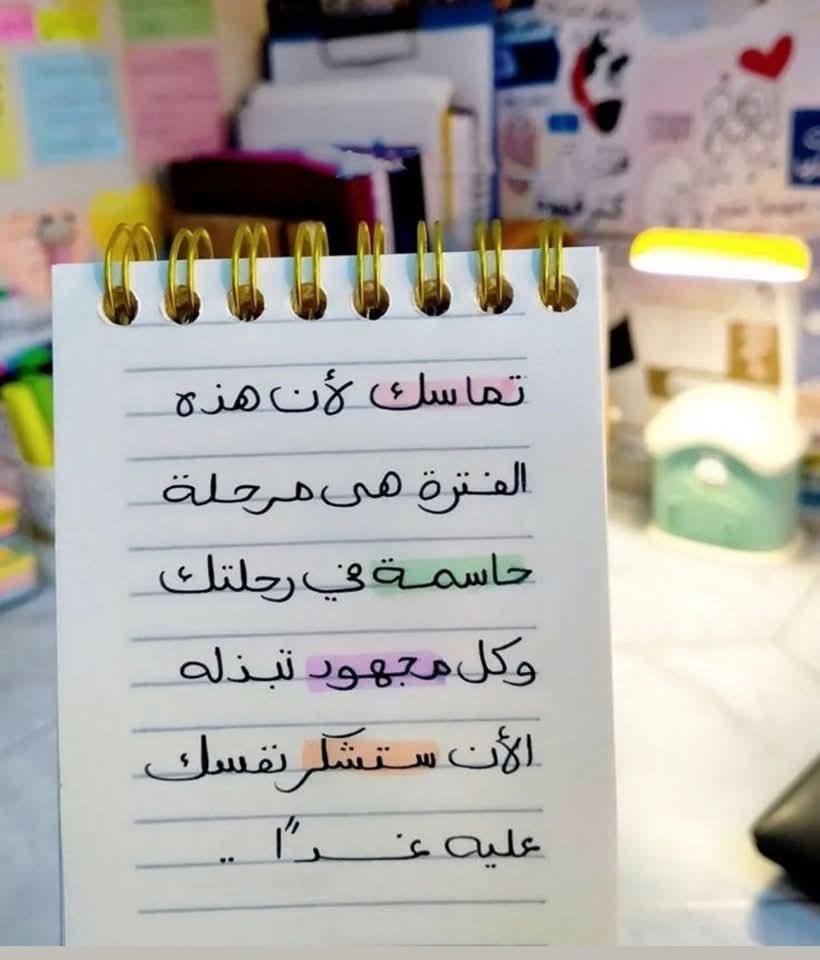 تماسك لأن هذه
الفترة هى مرحلة
حاسمة في رحلتك
وكل مجهود تبذله
الأن ستشكر نفسك
عليه غــدًا ..